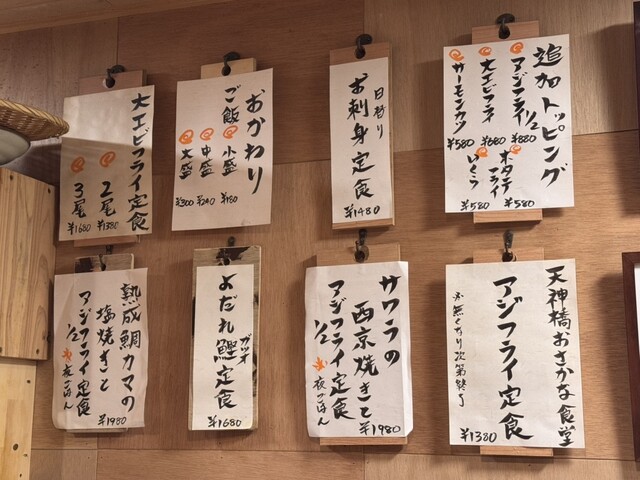 追加トッピング
アジフライ1/2 ¥880
大エビフライ ¥680
サーモンカツ ¥580
ホタテフライ ¥580
いくら ¥580
日替り
お刺身定食
¥1480
おかわり
ご飯
小盛 ¥180
中盛 ¥240
大盛 ¥300
大エビフライ定食
2尾 ¥1380
3尾 ¥1680
天神橋おさかな食堂
アジフライ定食
※無くなり次第終了
¥1380
サワラの
西京焼きと
アジフライ定食
1/2
夜ごはん
¥1980
ガツオ
よだれ鰹定食
¥1680
熟成鯛カマの
塩焼きと
アジフライ定食
1/2
夜ごはん
¥1980